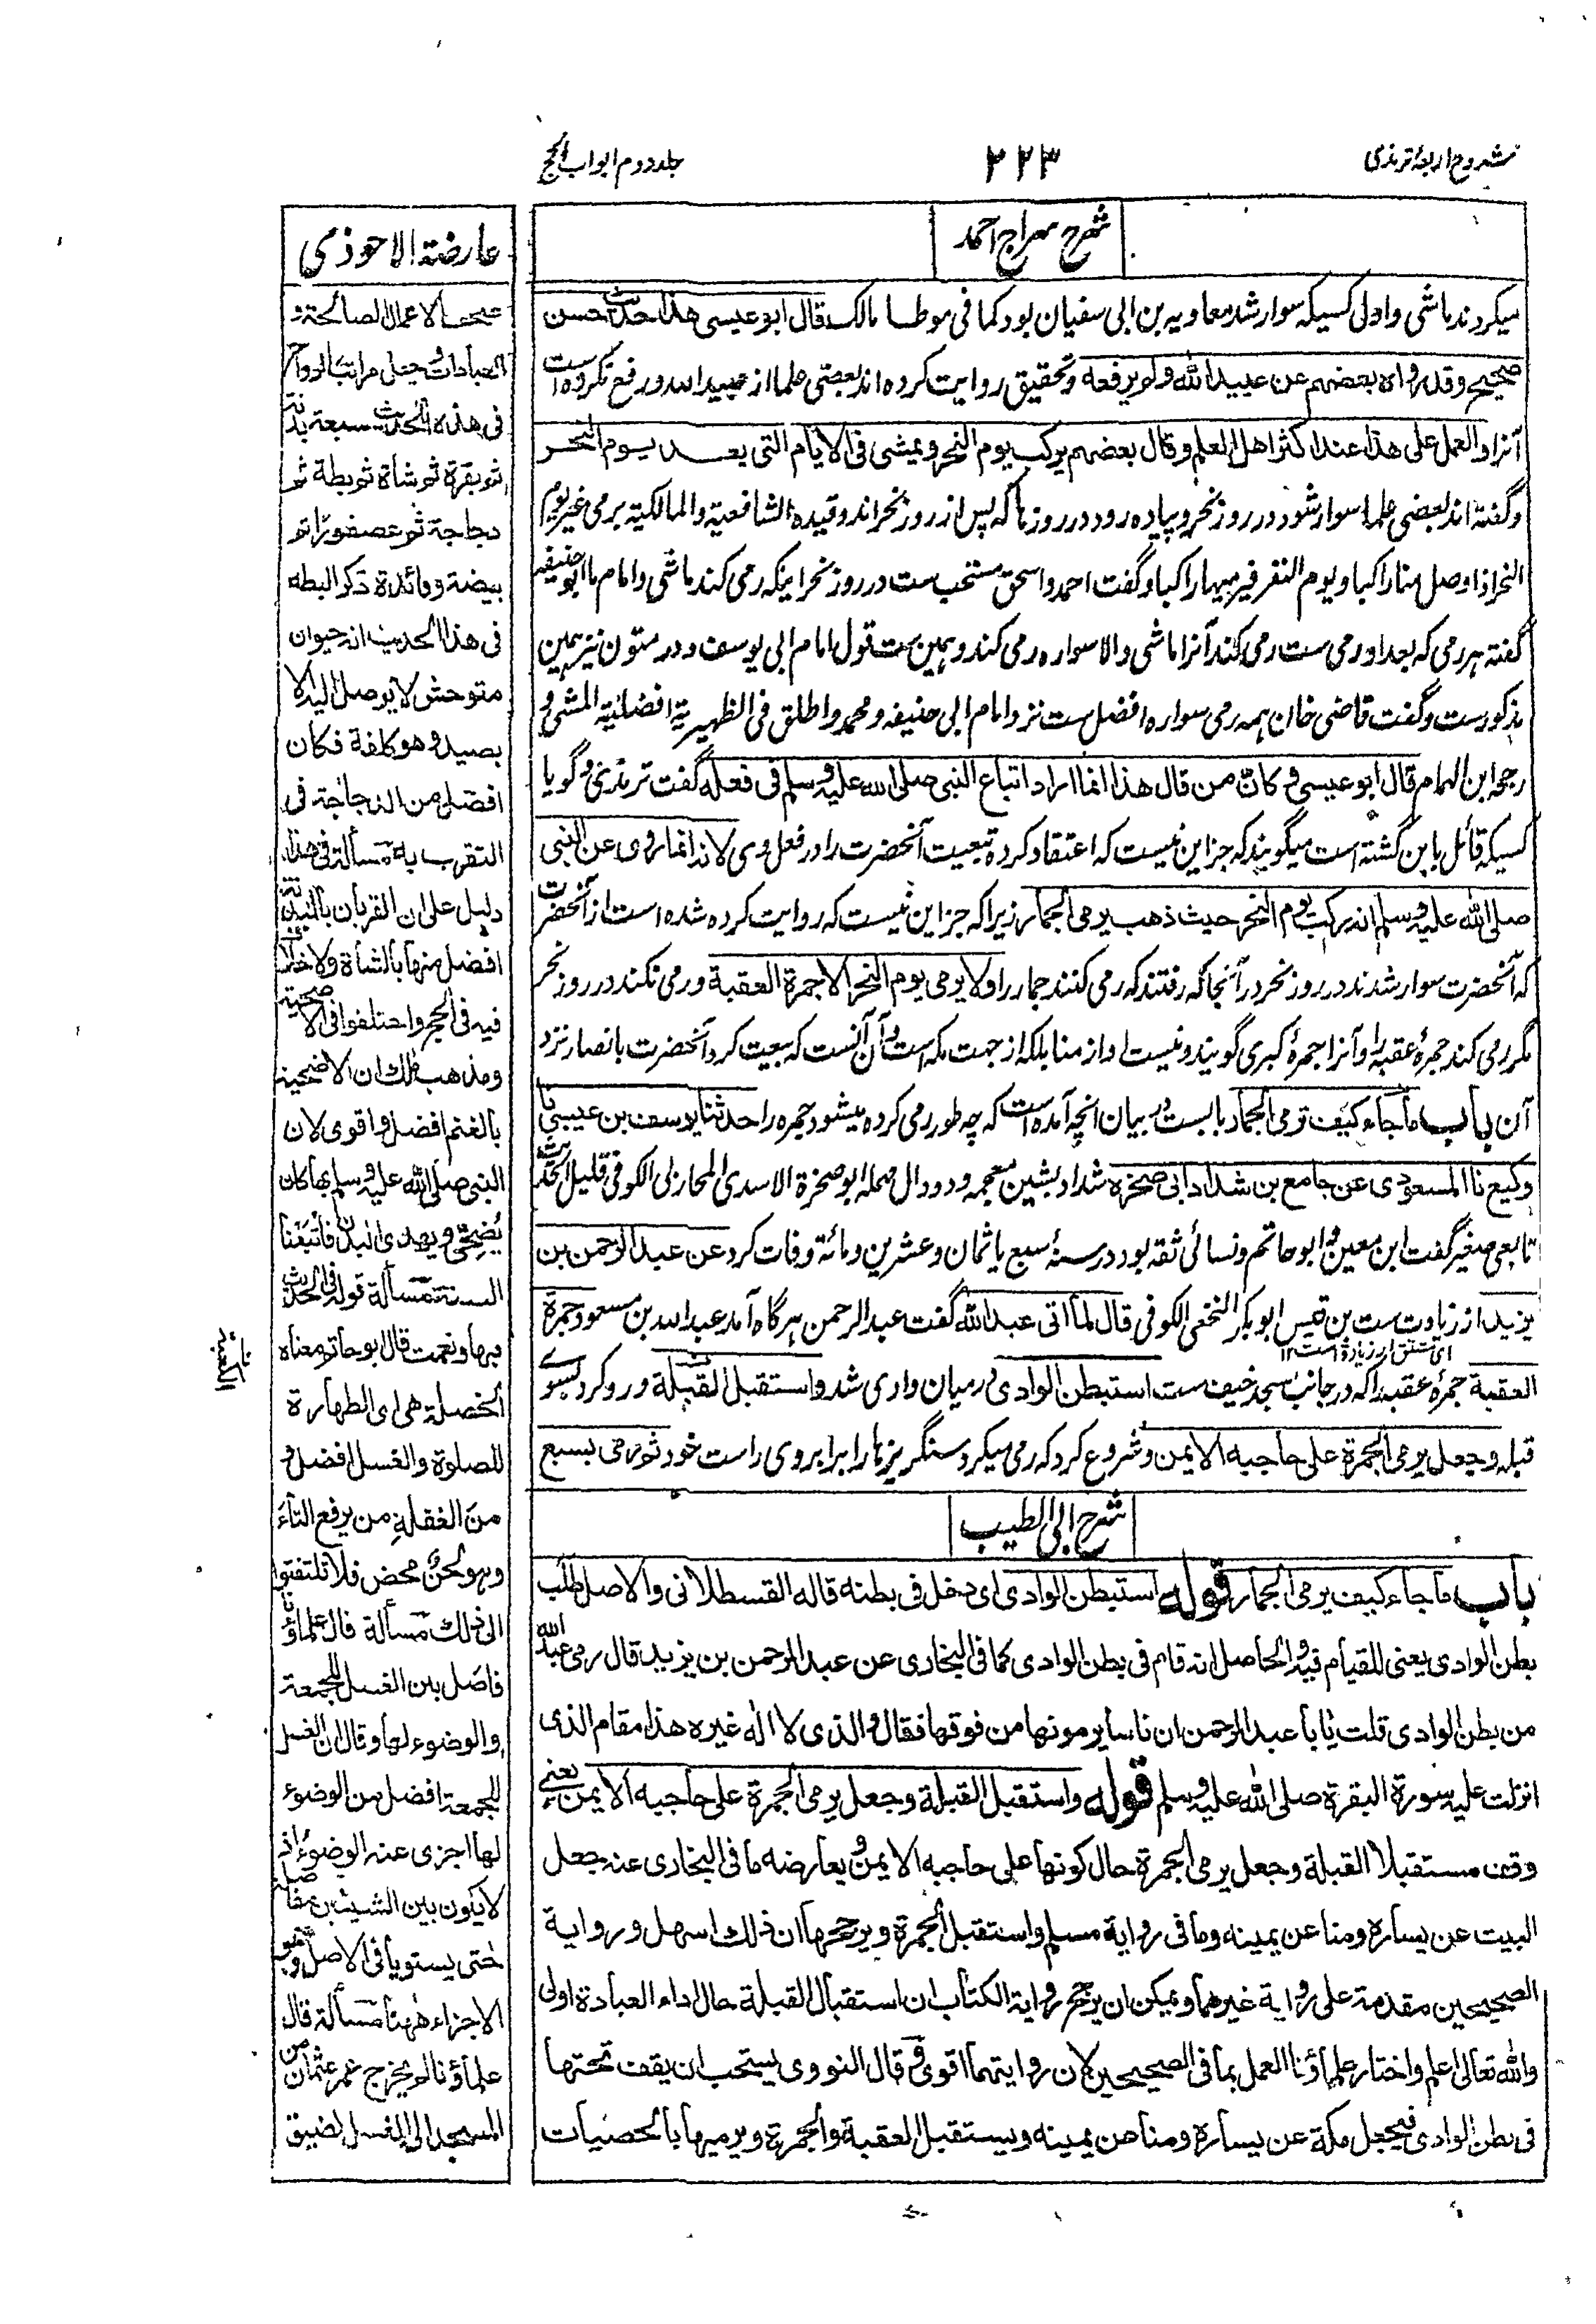 شروح اربعۀ ترمذی
۲۲۳
جلد دوم ابواب الحج
شرح سراج احمد
میکردند ماشی واول کسیکه سوار شد معاویه بن ابی سفیان بود کما فی موطا مالک قال ابو عیسی هذا حدیث حسن
صحیح وقد رواه بعضهم عن عبید الله ولم یرفعه وتحقیق روایت کرده اند بعضی علما از عبید الله ورفع نکرده است
آنرا والعمل علی هذا عند اکثر اهل العلم وقال بعضهم یرکب یوم النحر ویمشی فی الایام التی بعد یوم النحر
وگفته اند بعضی علما سوار شود در روز نحر وپیاده رود در روزها که پس از روز نحر اند وقیده الشافعیة والمالکیة برمی غیر یوم
النحر اذا وصل منا راکبا ویوم النفر فیرمیها راکبا وگفت احمد واسحق مستحب ست در روز نحر اینکه رمی کند ماشی وامام ما ابو حنیفه
گفته هر رمی که بعد او رمی ست رمی کند آنرا ماشی والا سواره رمی کند وهمین ست قول امام ابی یوسف ودر متون نیز همین
مذکورست وگفت قاضی خان همه رمی سواره افضل ست نزد امام ابی حنیفه ومحمد واطلق فی الظهیریة افضلیة المشی و
رجحه ابن الهمام قال ابو عیسی وکان من قال هذا انما اراد اتباع النبی صلی الله علیه وسلم فی فعله گفت ترمذی وگویا
کسیکه قائل باین گشته است میگویند که جز این نیست که اعتقاد کرده تبعیت آنحضرت را در فعل وی لانه انما روی عن النبی
صلی الله علیه وسلم انه رکب یوم النحر حیث ذهب یرمی الجمار زیراکه جز این نیست که روایت کرده شده است از آنحضرت
که آنحضرت سوار شدند در روز نحر در آنجا که رفتند که رمی کنند جمار را ولا یرمی یوم النحر الا جمرة العقبة ورمی نکند در روز نحر
مگر رمی کند جمرهٔ عقبه را وآنرا جمرهٔ کبری گویند ونیست او از منا بلکه از جهت مکه است وآن آنست که بیعت کرد آنحضرت بانصار نزد
آن باب ما جاء کیف ترمی الجمار بابست در بیان آنچه آمده است که چه طور رمی کرده میشود جمره را حدثنا یوسف بن عیسی نا
وکیع نا المسعودی عن جامع بن شداد ابی صخره شداد بشین معجمه ودو دال مهمله ابو صخرة الاسدی المحاربی الکوفی قلیل الحدیث
تابعی صغیر گفت ابن معین وابو حاتم ونسائی ثقه بود در سنهٔ سبع یا ثمان وعشرین ومائة وفات کرد عن عبد الرحمن بن
یزید از زیادت ست بن قیس ابو بکر النخعی الکوفی قال لما اتی عبد الله گفت عبد الرحمن هرگاه آمد عبد الله بن مسعود جمرة
ای مشتق از زیادة است ۱۲
العقبة جمرهٔ عقبه را که در جانب مسجد خیف ست استبطن الوادی درمیان وادی شد واستقبل القبلة ورو کرد بسوے
قبله وجعل یرمی الجمرة علی حاجبه الایمن وشروع کرد که رمی میکرد سنگریزها را برابروی راست خود ثم رمی بسبع
شرح ابی الطیب
باب ما جاء کیف یرمی الجمار قوله استبطن الوادی ای دخل فی بطنه قاله القسطلانی والاصل طلب
بطن الوادی یعنی للقیام فیه والحاصل انه قام فی بطن الوادی کما فی البخاری عن عبد الرحمن بن یزید قال رمی عبد الله
من بطن الوادی قلت یا ابا عبد الرحمن ان ناسا یرمونها من فوقها فقال والذی لا اله غیره هذا مقام الذی
انزلت علیه سورة البقرة صلی الله علیه وسلم قوله واستقبل القبلة وجعل یرمی الجمرة علی حاجبه الایمن یعنی
وقف مستقبلا القبلة وجعل یرمی الجمرة حال کونها علی حاجبه الایمن ویعارضه ما فی البخاری عنه جعل
البیت عن یساره ومنا عن یمینه وما فی روایة مسلم واستقبل الجمرة ویرجحها ان ذلک اسهل وروایة
الصحیحین مقدمة علی روایة غیرهما ویمکن ان یرجح روایة الکتاب ان استقبال القبلة حال اداء العبادة اولی
والله تعالی اعلم واختار علماؤنا العمل بما فی الصحیحین لان روایتهما اقوی وقال النووی یستحب ان یقف تحتها
فی بطن الوادی فیجعل مکة عن یساره ومنا عن یمینه ویستقبل العقبة والجمرة ویرمیها بالحصیات
عارضة الاحوذی
صحف الاعمال الصالحة و
العبادات وجعل مراتب الرواح
فی هذه الحدیث سبعة بدنة
ثم بقرة ثم شاة ثم بطة ثم
دجاجة ثم عصفورا ثم
بیضة وفائدة ذکر البطه
فی هذا الحدیث انه حیوان
متوحش لا یوصل الیه الا
بصید وهو کلفة فکان
افضل من الدجاجة فی
التقرب به مسألة فی هذا
دلیل علی ان القربان بالبدنة
افضل منها بالشاة ولا خلاف
فیه فی الحج واختلفوا فی الاضحیة
ومذهب مالک ان الاضحیة
بالغنم افضل واقوی لان
النبی صلی الله علیه وسلم بها کان
یُضحّی ویهدی البدن فاتبعنا
السنة مسألة قوله فی الحدیث
فبها ونعمت قال ابو حاتم معناه
الخصلة هی ای الطهارة
للصلوة والغسل افضل و
من الغفلة من یرفع التاء
وهو لحن محض فلا تلتفتوا
الی ذلک مسألة قال علماؤنا
فاضل بین الغسل للجمعة
والوضوء لها وقال ان الغسل
للجمعة افضل من الوضوء
لها اجزی عنه الوضوء اذ
لا یکون بین الشیئین مفاضلة
حتی یستویا فی الاصل وهو
الاجزاء ههنا مسألة قال
علماؤنا لم یخرج عمر عثمان من
المسجد الی الغسل لضیق